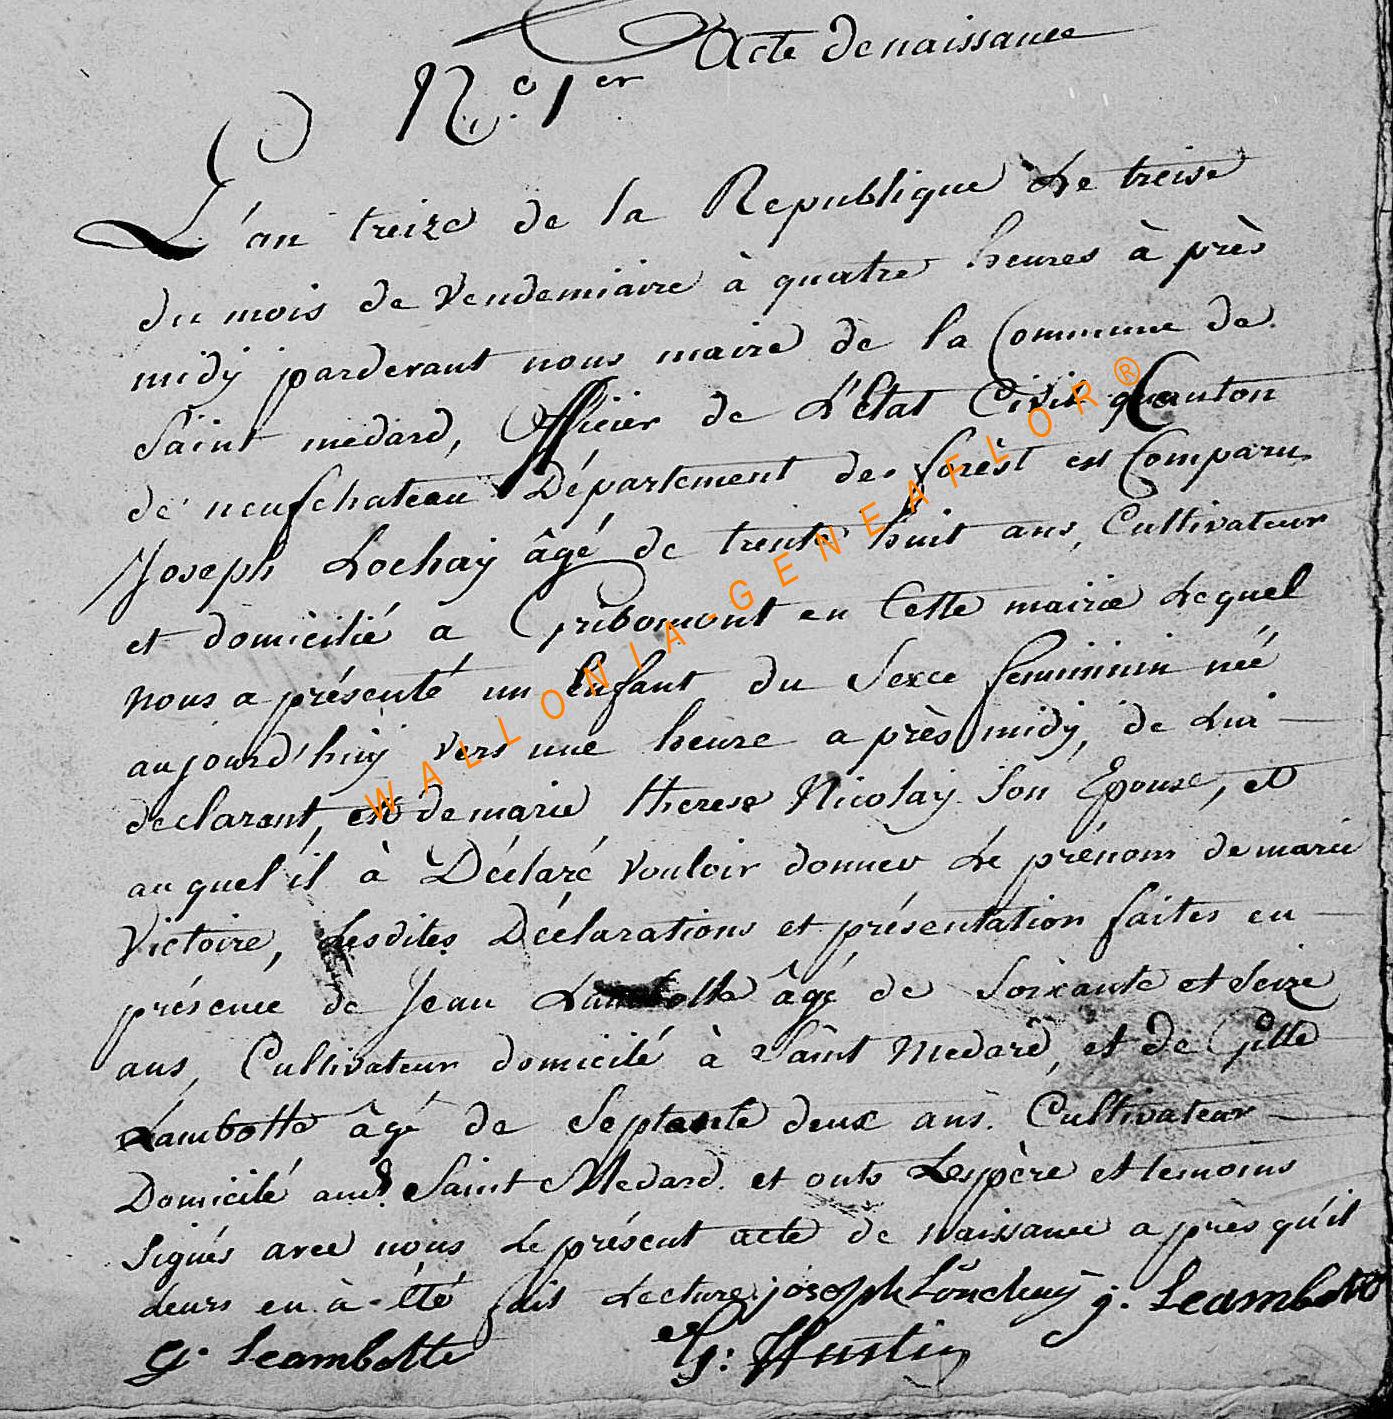 Acte de naissance
N.º 1er
L'an treize de la Republique Le treise
du mois de Vendemiaire à quatre heures à près
midÿ pardevant nous maire de la Commune de
Saint médard, Officier de L'Etat Civil Canton
de neufchateau Département des forèst est Comparu
Joseph Lochaÿ âgé de trente huit ans, Cultivateur
et domicilié a Gribomont en Cette mairie Lequel
nous a présenté un Enfant du Sexce feminimin néé
aujourd'huÿ vers une heure a près midÿ, de Lui
declarant, et de marie therese Nicolaÿ Son Epouse, et
au quel il à Déclaré vouloir donner Le prénom de marie
Victoire, Lesdites Déclarations et présentation faites en
présence de Jean Lambotte âgé de Soixante et Seize
ans, Cultivateur domicilé à Saint Medard, et de Gille
Lambotte âgé de Septante deux ans. Cultivateur
Domicilé Saint Medard. et onts Le père et temoins
Signés avec nous Le présent acte de naissance a près qu'il
Leurs en à été fait Lecture. josoph Lôuchaÿ j. Leambotte
g. Leambotte G: Hustin
WALLONIA-GENEAFLOR®